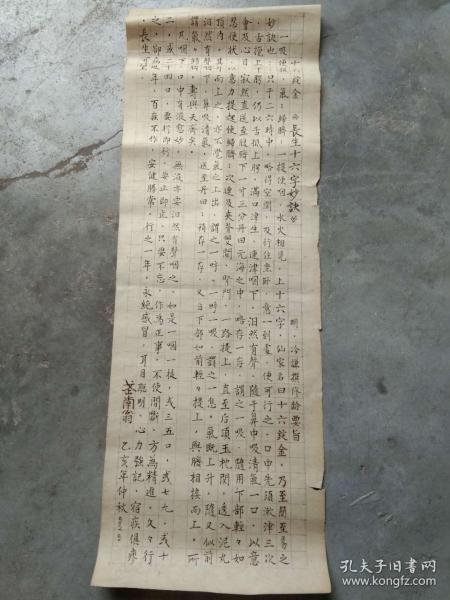 十六錠金 《長生十六字妙訣》 明·冷謙撰修齡要旨
一吸便提，氣氣歸臍；一提便咽，水火相見。上十六字，仙家名曰十六錠金，乃至簡至易之
妙訣也。只于二六時中，略得空閒，及行住坐臥，意一到處，便可行之。口中先須漱津三次
，舌攪上下腭，仍以舌抵上腭，滿口津生，連津咽下，汩然有聲。隨于鼻中吸清氣一口，以意
會及心目，寂然直送至肚臍下一寸三分丹田元海之中，略存一存，謂之一吸。隨用下部輕輕如
忍便狀，以意力提起使歸臍，次連及夾脊雙關，腎門，一路提上，直至后頂玉枕關，透入泥丸
頂内，其升而上之，亦不覺氣之上出，謂之一呼。一呼一吸，謂之一息。氣既上升，隨又似前
汩然有聲咽下，鼻吸清氣，送至丹田，稍存一存，又自下部如前輕輕提上，與臍相接而上。所
謂氣氣歸臍，壽與天齊矣。
凡咽下，口中有液愈妙，無液亦要汩然有聲咽之。如是一咽一提，或三五口，或七九，或十
二，或二十四口，要行即行，要止即止，只要不忘，作為正事，不使間斷，方為精進。久久行
之，卻病延年，百疾不作，安健勝常。行之一年，永絕感冒，耳目聰明，心力強記，宿疾俱瘳
，長生可望。
乙亥年仲秋
孔夫子旧书网